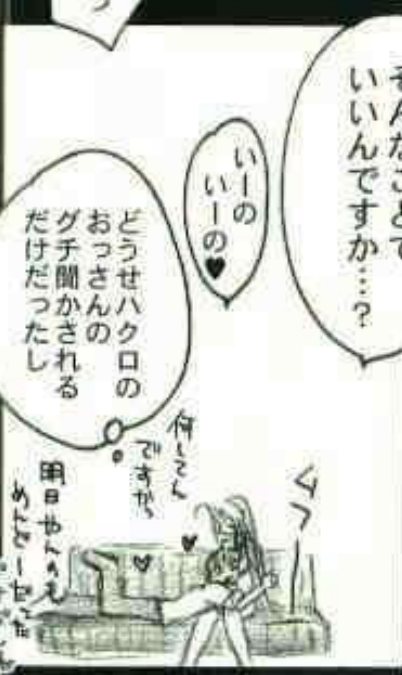 そんなことで
いいんですか…?
いーの
いーの♥
どうせハクロの
おっさんの
グチ聞かされる
だけだったし
何してん
ですか
明日やんのも
めんどーだった